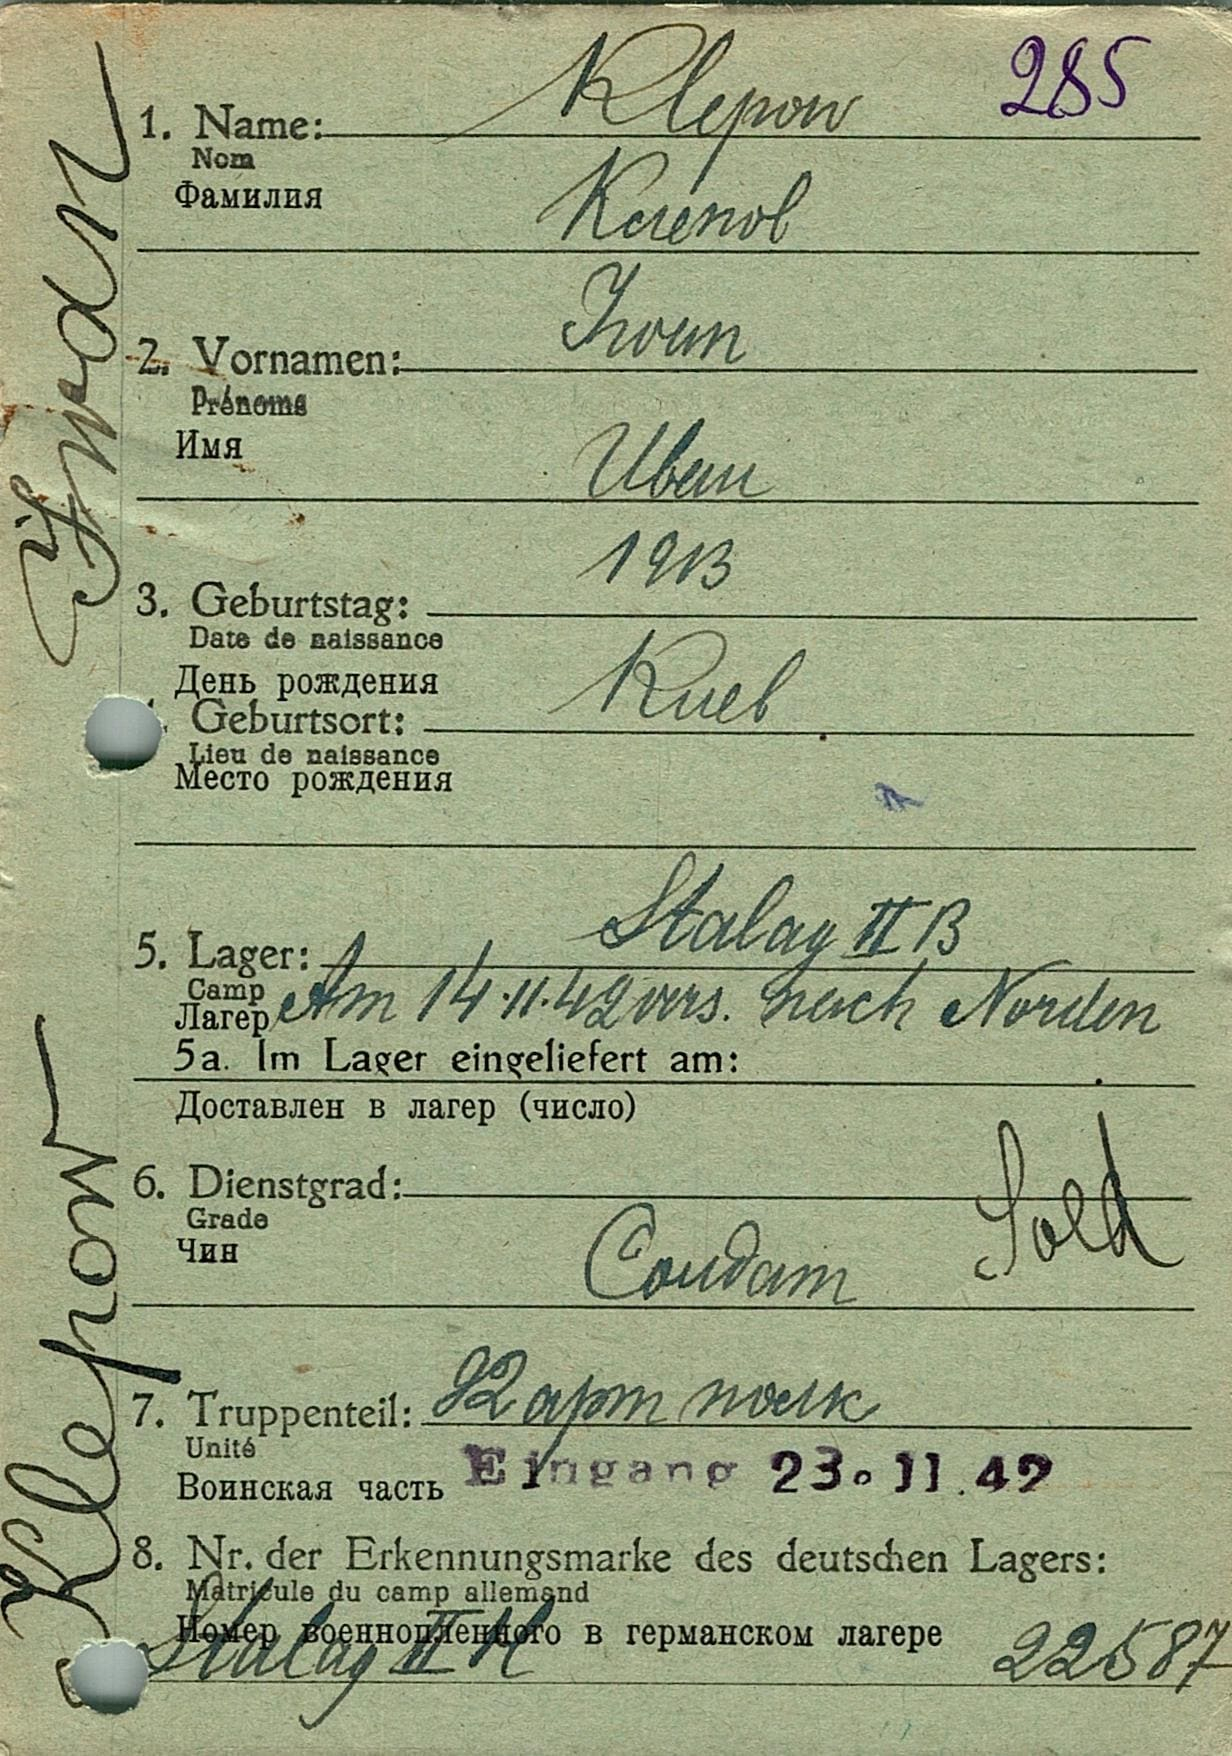 285
1. Name: Klepow
Nom
Фамилия
Клепов
2. Vornamen: Iwan
Prénoms
Имя
Иван
3. Geburtstag: 1913
Date de naissance
День рождения
Geburtsort: Киев
Lieu de naissance
Место рождения
5. Lager: Stalag II B
Camp
Лагер Am 14.11.42 vers. nach Norden
5a. Im Lager eingeliefert am:
Доставлен в лагер (число)
6. Dienstgrad:
Grade
Sold
Чин
Солдат
7. Truppenteil: 92 арт полк
Unité
Воинская часть Eingang 23.11.42
8. Nr. der Erkennungsmarke des deutschen Lagers:
Matricule du camp allemand
Номер военнопленного в германском лагере
Stalag II 22587
Klepow Iwan